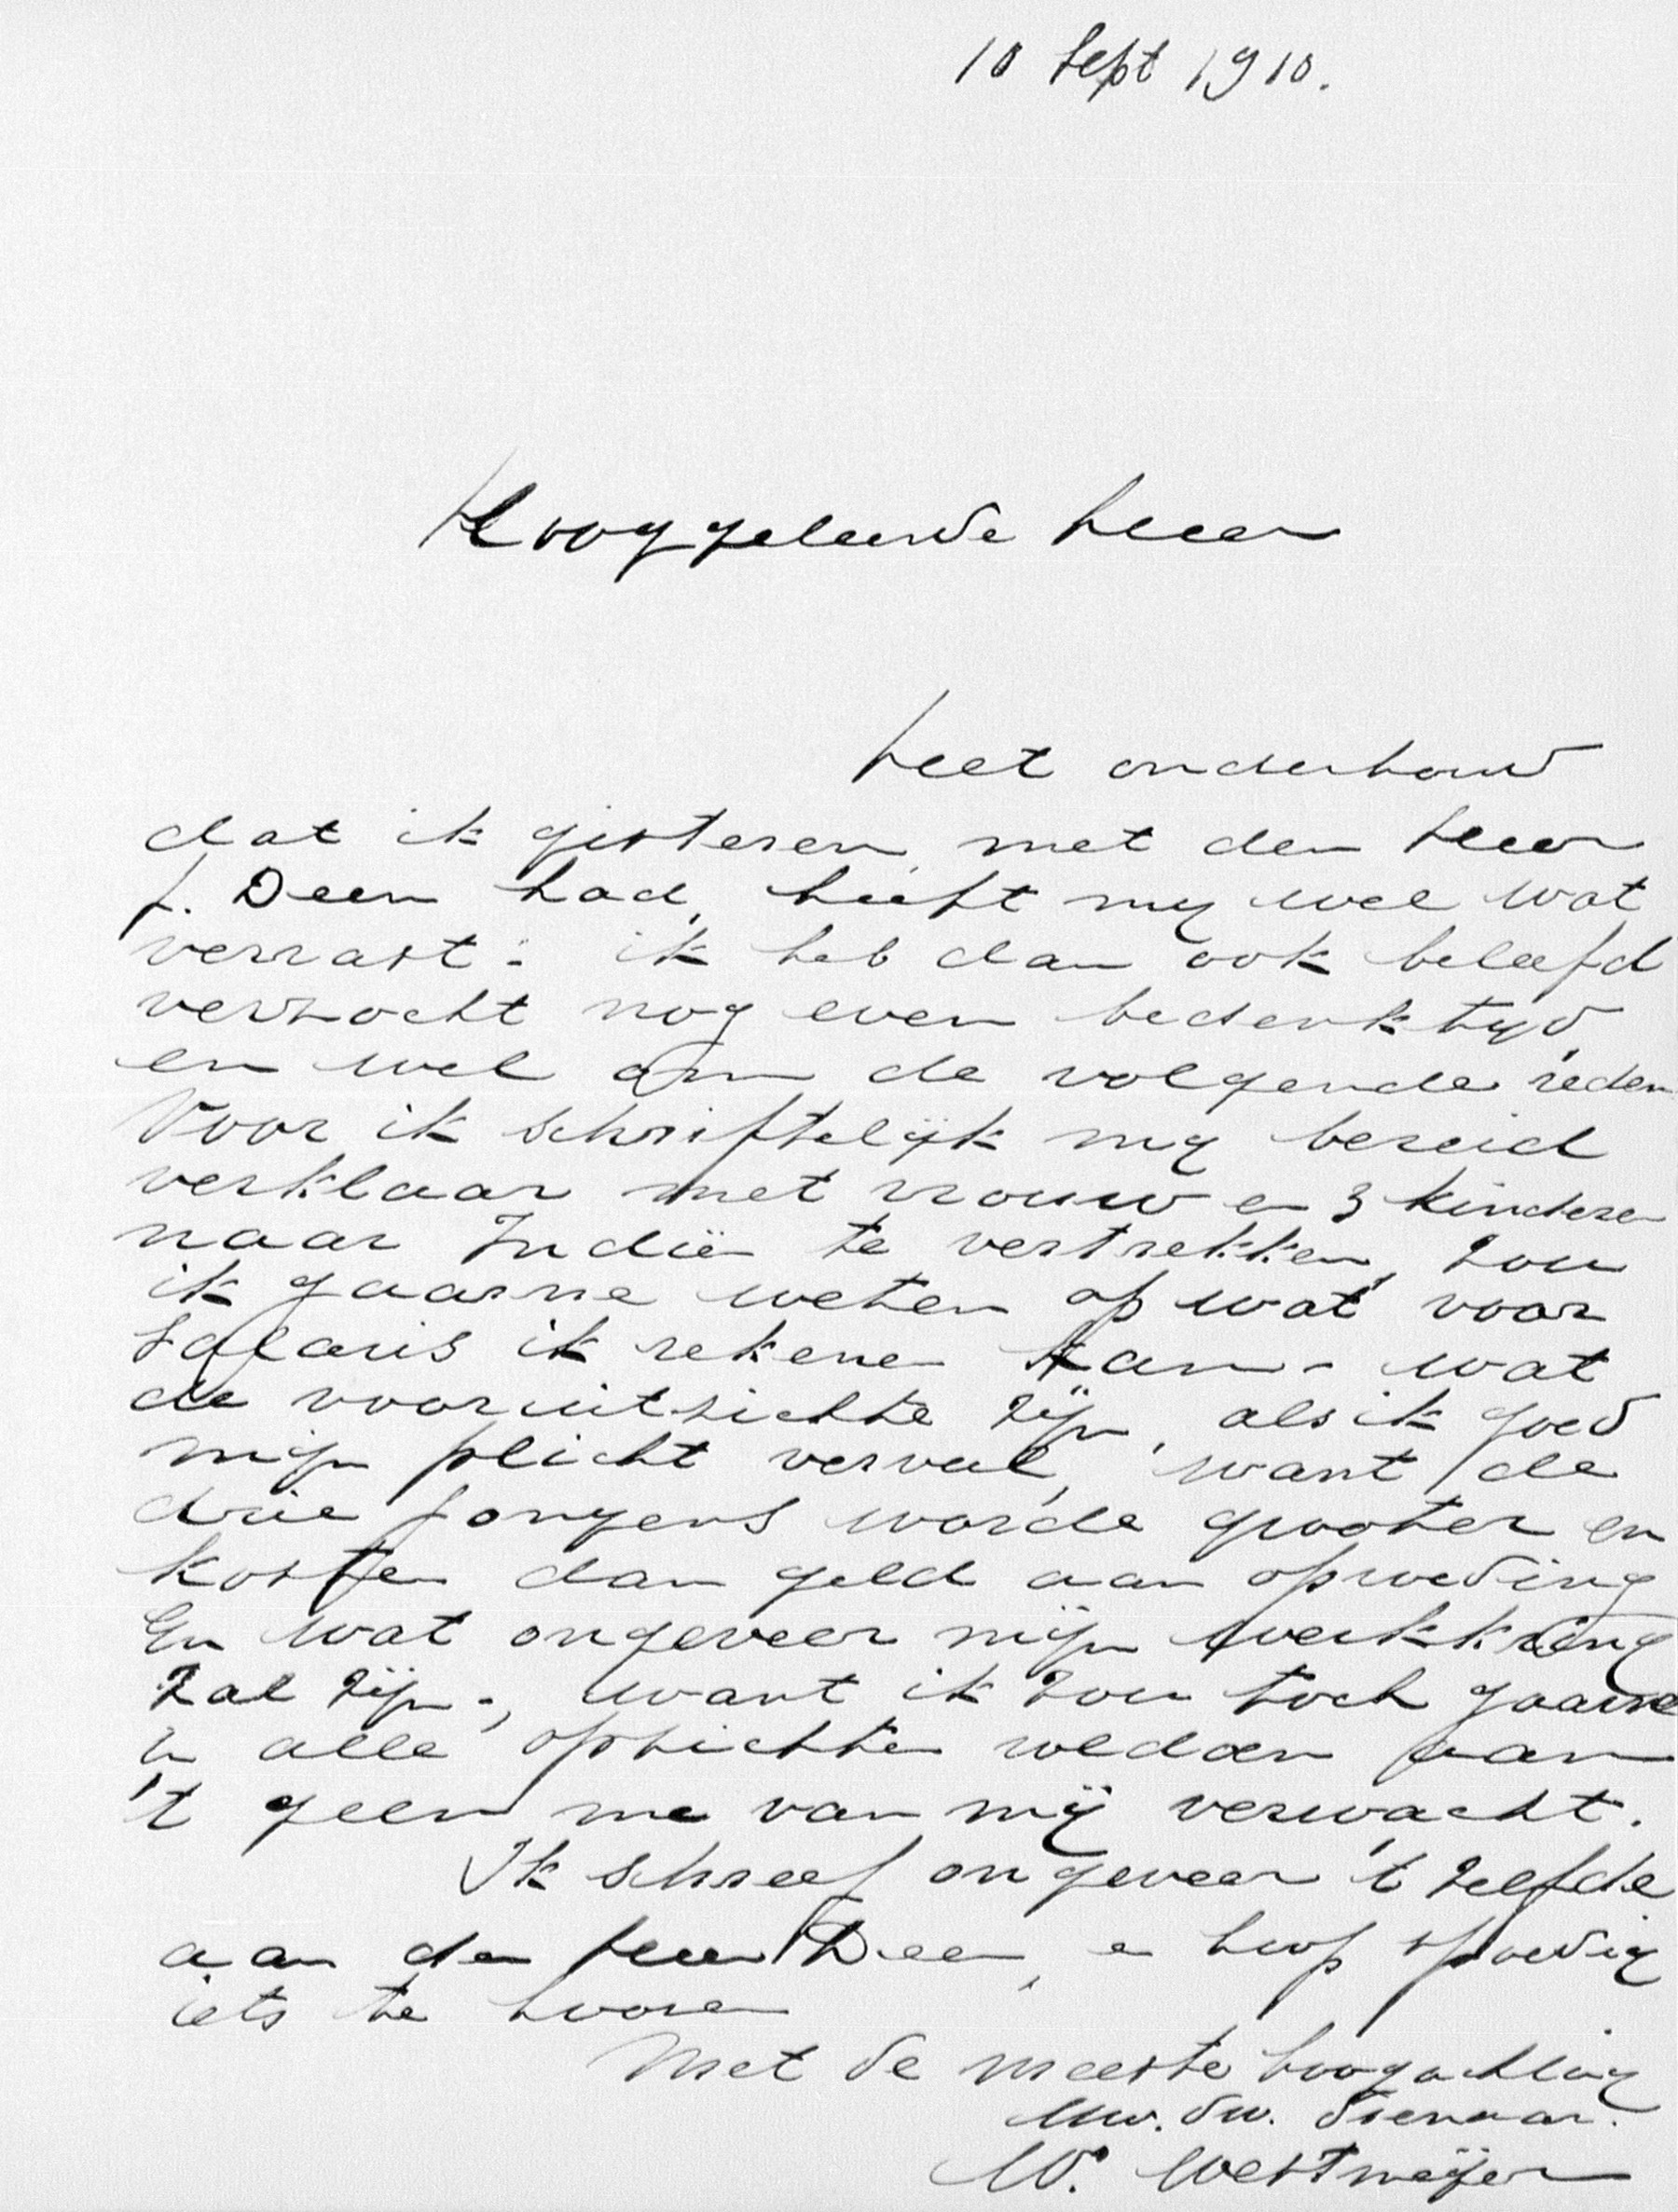 10 Sept 1910.
Hooggeleerde Heer
Het onderhoud
dat ik gisteren met den Heer
J. Deen had, heeft my wel wat
verrast: ik heb dan ook beleefd
verzocht nog even bedenktyd,
en wel om de volgende reden
Voor ik schriftelijk my bereid
verklaar met vrouw en 3 kinderen
naar Indiën te vertrekken, zou
ik gaarne weten op wat voor
salaris ik rekenen kan - wat
de vooruitzichte zijn, als ik goed
mijn plicht vervul, want de
drie jongens worde grooter en
kosten dan geld aan opvoeding
En wat ongeveer mijn werkkring
zal zijn -, want ik zou toch gaarne
in alle opzichten voldoen aan
't geen me van mij verwacht.
Ik schreef ongeveer 't zelfde
aan den Heer Deen, en hoop spoedig
iets te hooren
Met de meeste hoogachting
Uw. dw. dienaar.
W. Westmeijer